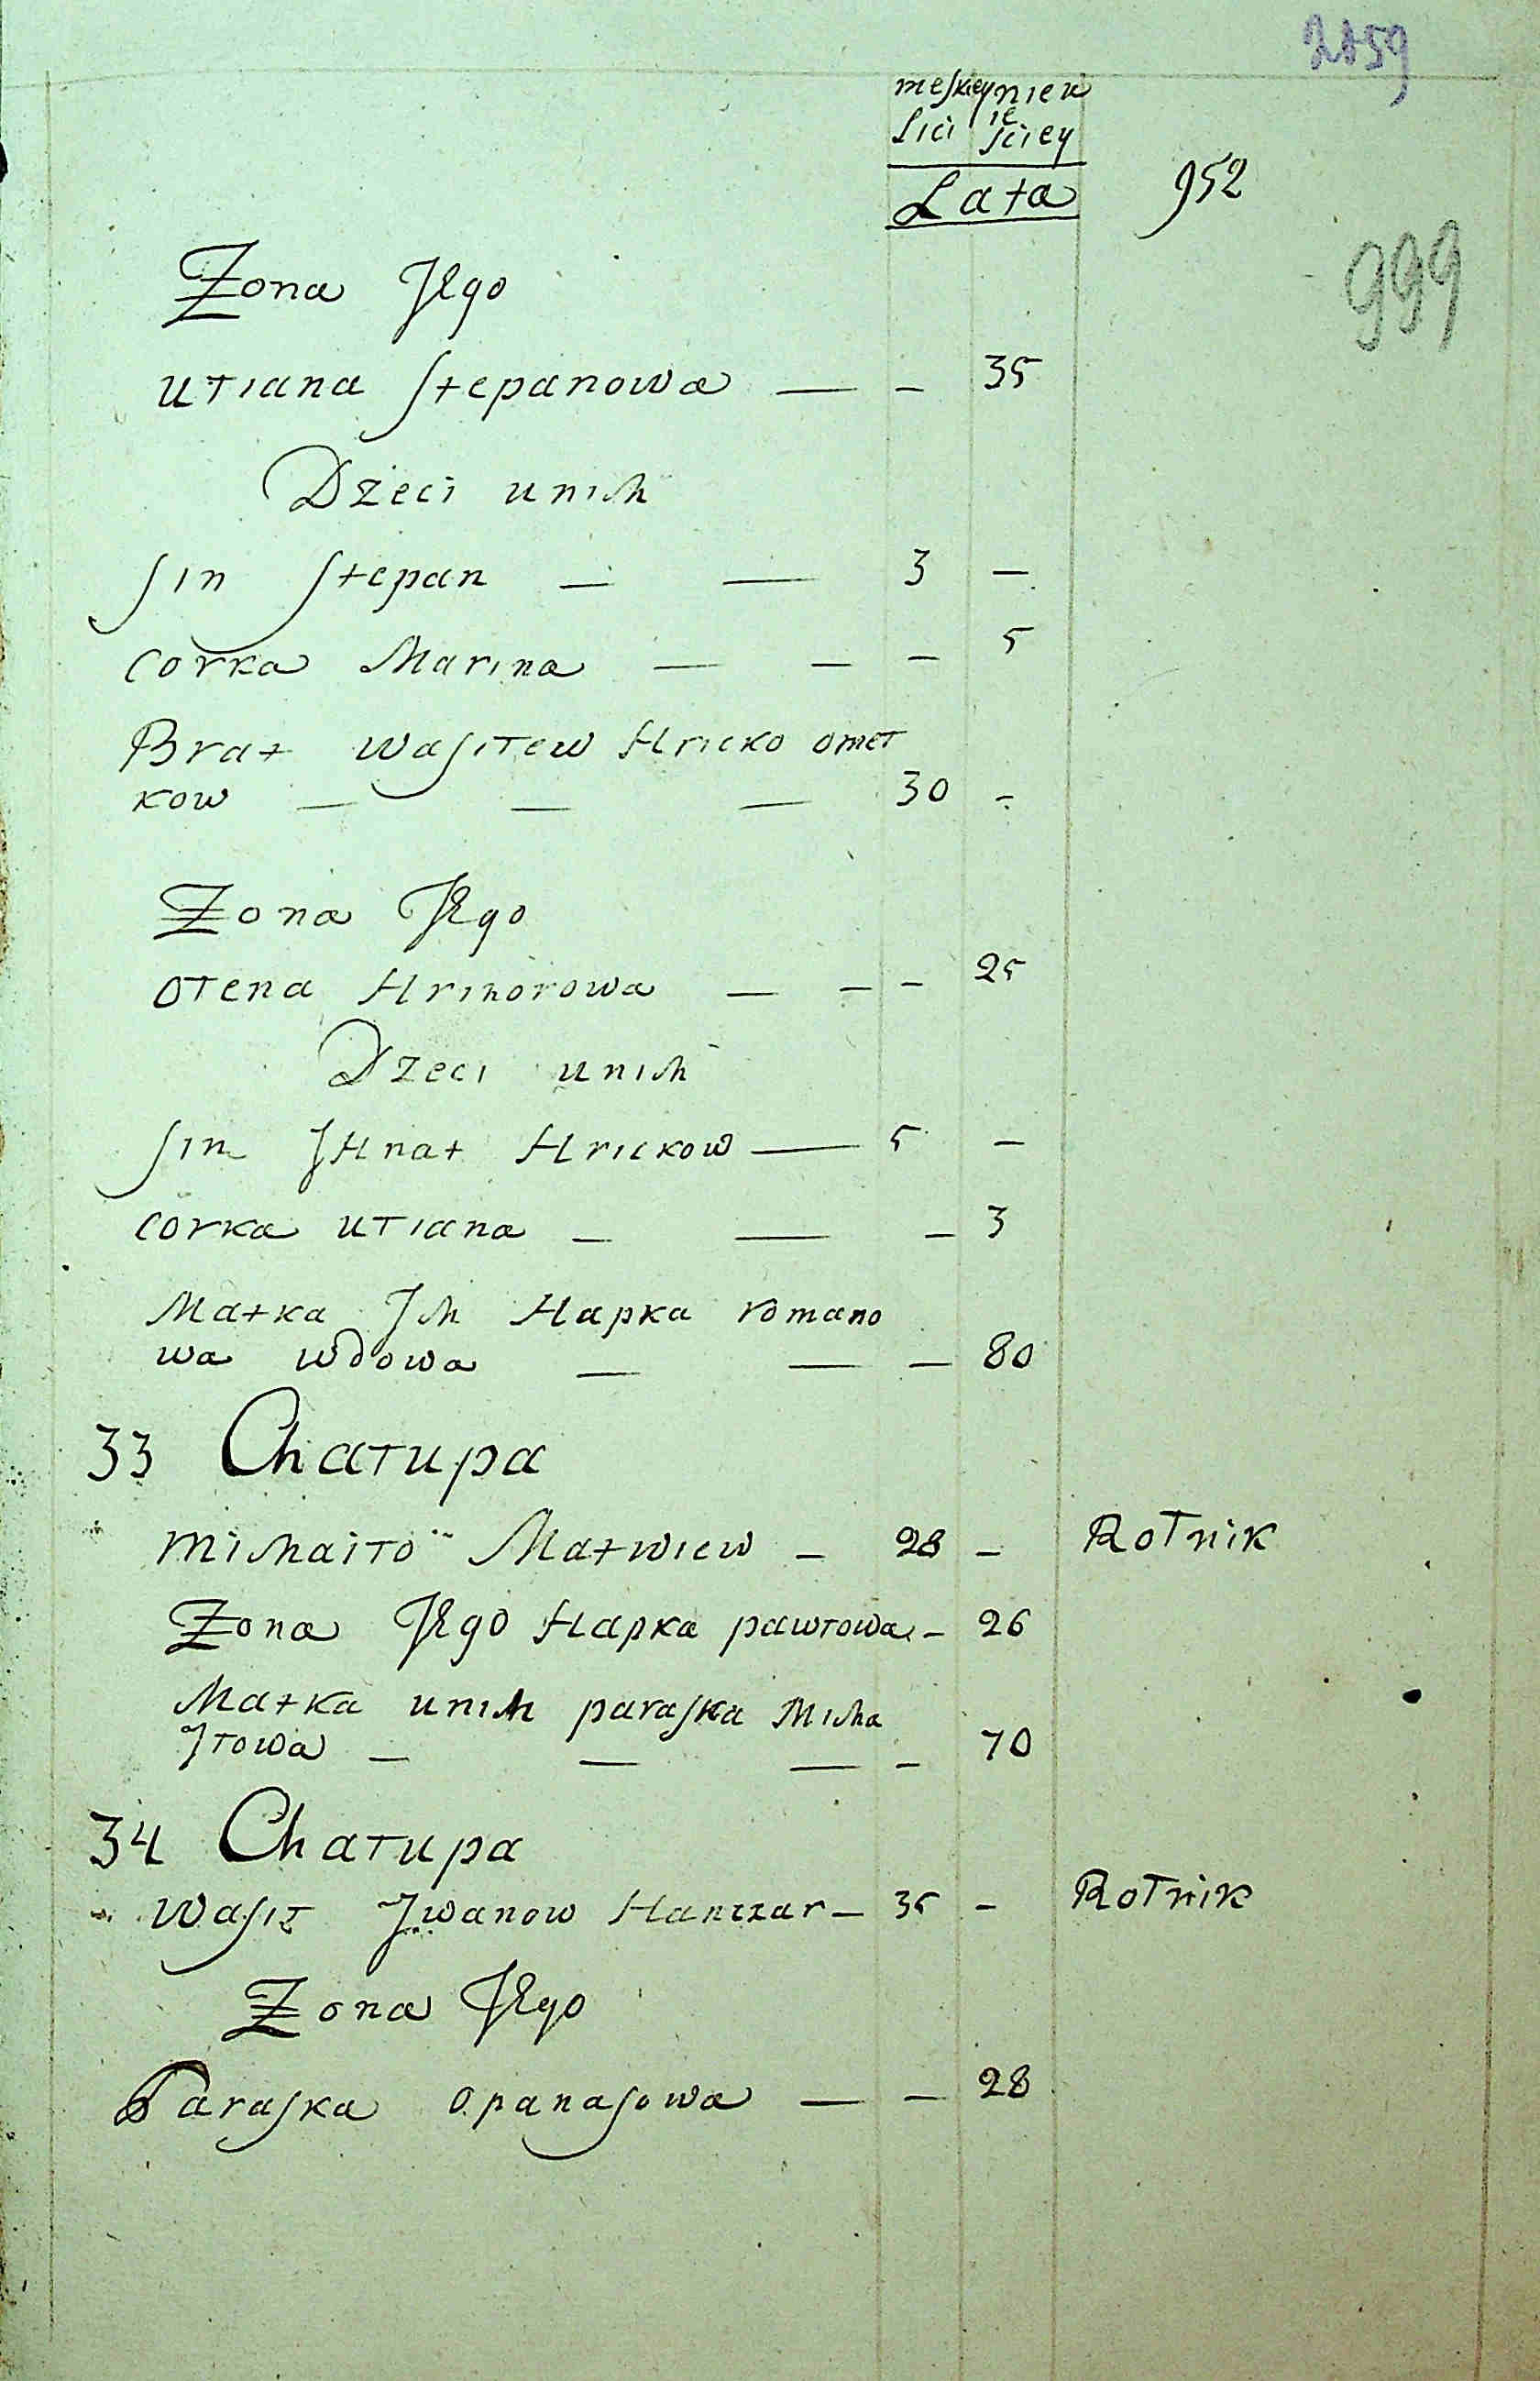 2859
męskiey niew
lici ie
sciey
Lata 952
999
Żona Jego
Ułiana Stepanowa — — 35
Dzeci unich
Sin Stepan — — 3 —
Corka Marina — — — 5
Brat Wasilew Hricko omeł
kow — — — 30 —
Żona Jego
Ołena Hrihorowa — — — 25
Dzeci unich
Sin JHnat Hrickow — 5 —
Corka Ułiana — — — 3
Matka Jch Hapka romano
wa wdowa — — — 80
33 Chałupa
Michaiło Matwiew — 28 — Rolnik
Żona Jego Hapka pawłowa — 26
Matka unich paraska Micha
Jłowa — — — — 70
34 Chałupa
Wasił Jwanow Hanczar — 35 — Rolnik
Żona Jego
Paraska opanasowa — — 28